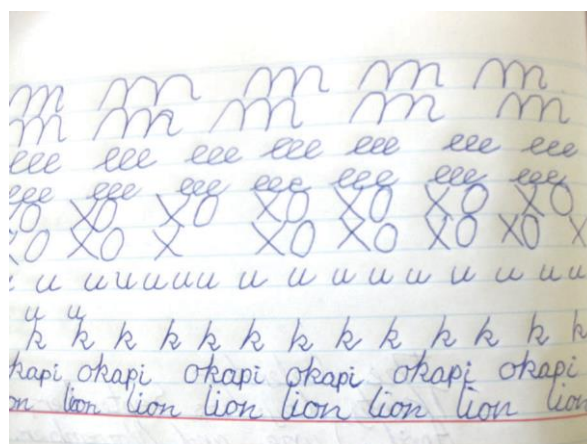 m m m m m
m m m m m
eee eee eee eee eee eee eee
eee eee eee eee eee eee eee
XO XO XO XO XO XO XO
XO XO X XO XO XO XO X
u u u u u u u u u u u u u u u
u u
k k k k k k k k k k k k k
okapi okapi okapi okapi okapi
lion lion lion lion lion lion